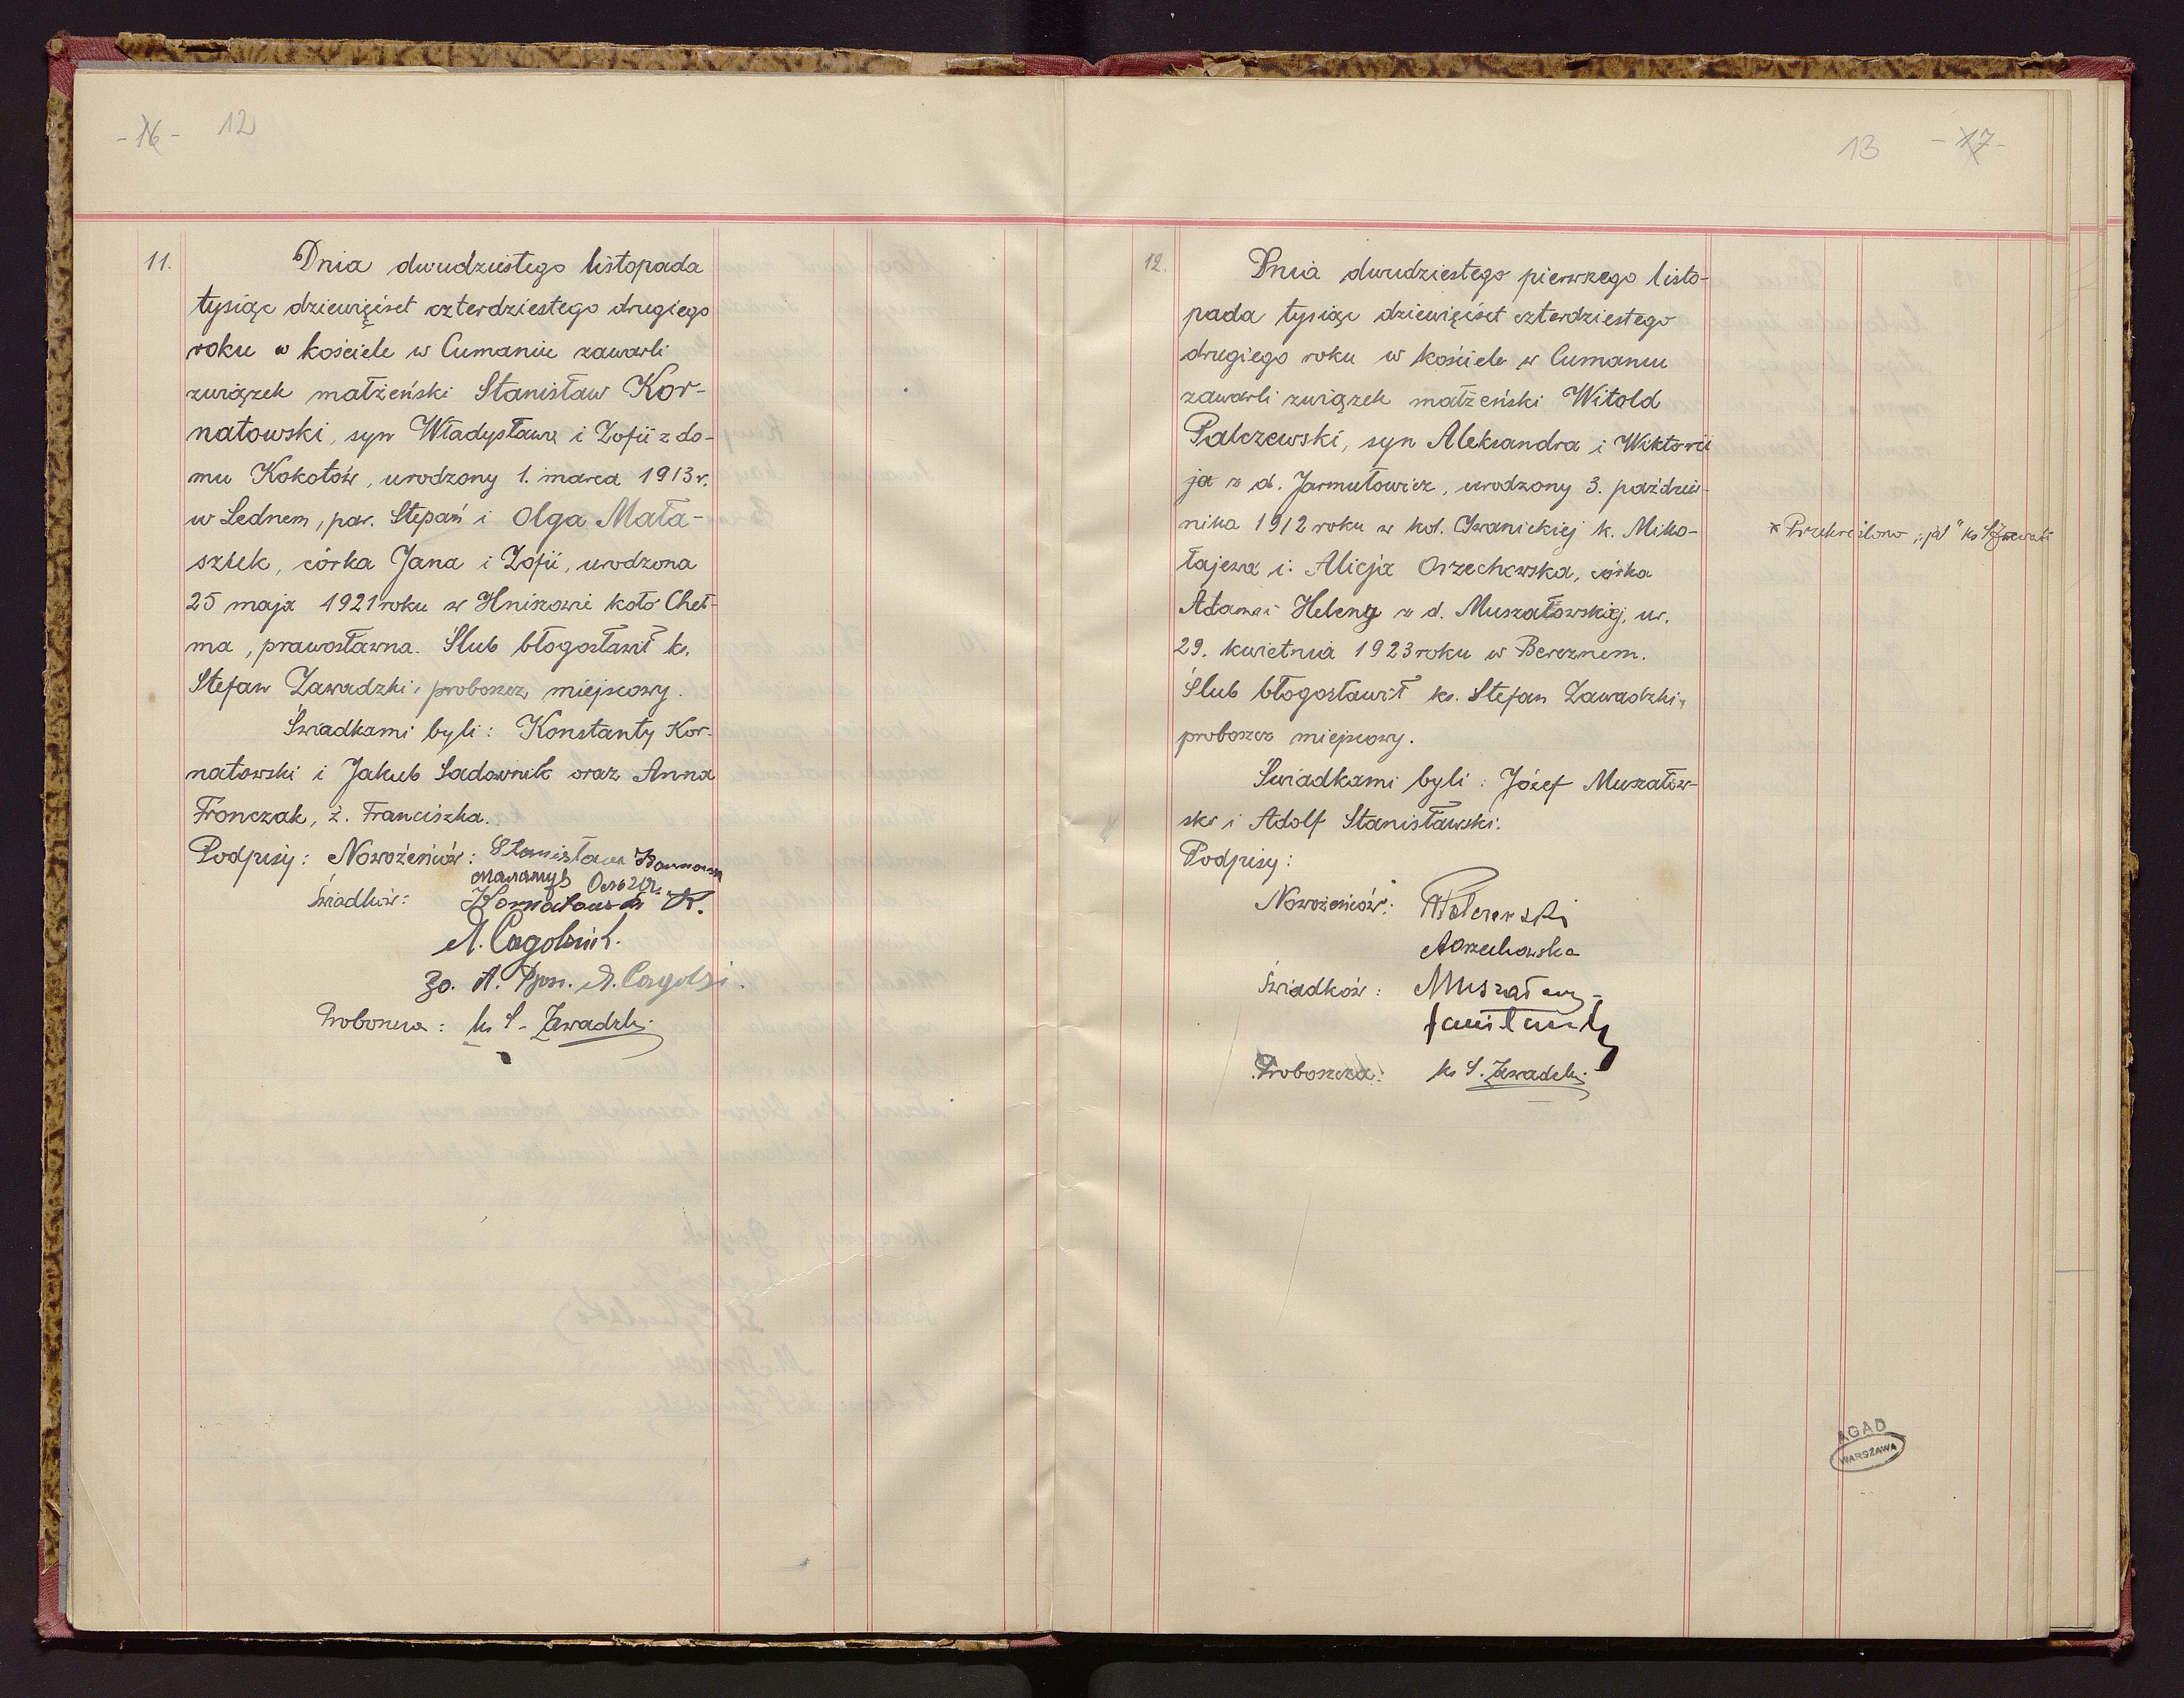 -16- 12
11. Dnia dwudziestego listopada
tysiąc dziewięćset czterdziestego drugiego
roku w kościele w Cumaniu zawarli
związek małżeński Stanisław Kor-
natowski, syn Władysława i Zofii z do-
mu Kokotów, urodzony 1. marca 1913 r.
w Lednem, par. Stepań i Olga Mała-
sztek, córka Jana i Zofii, urodzona
25 maja 1921 roku w Hniszowie koło Cheł-
ma, prawosławna. Ślub błogosławił ks.
Stefan Zawadzki, proboszcz miejscowy.
Świadkami byli: Konstanty Kor-
natowski i Jakub Sadownik oraz Anna
Fronczak, ż. Franciszka.
Podpisy: Nowożeńców: Stanisław
Świadków: Kornatowski K.
Proboszcza: ks S. Zawadzki
13 -17-
12. Dnia dwudziestego pierwszego listo-
pada tysiąc dziewięćset czterdziestego
drugiego roku w kościele w Cumaniu
zawarli związek małżeński Witold
Palczewski, syn Aleksandra i Wiktorii
ja z d. Jarmułowicz, urodzony 3. paździer-
nika 1912 roku w kol. Iwanickiej k. Miko-
łajewa i Alicja Orzechowska, córka
Adama i Heleny z d. Muszałowskiej, ur.
29. kwietnia 1923 roku w Bereznem.
Ślub błogosławił ks. Stefan Zawadzki,
proboszcz miejscowy.
Świadkami byli: Józef Muszałow-
ski i Adolf Stanisławski.
Podpisy:
Nowożeńców: WPalczewski
AOrzechowska
Świadków:
Proboszcza: ks S. Zawadzki
* Przekreślono "ja" ks SZawadzki
AGAD
WARSZAWA